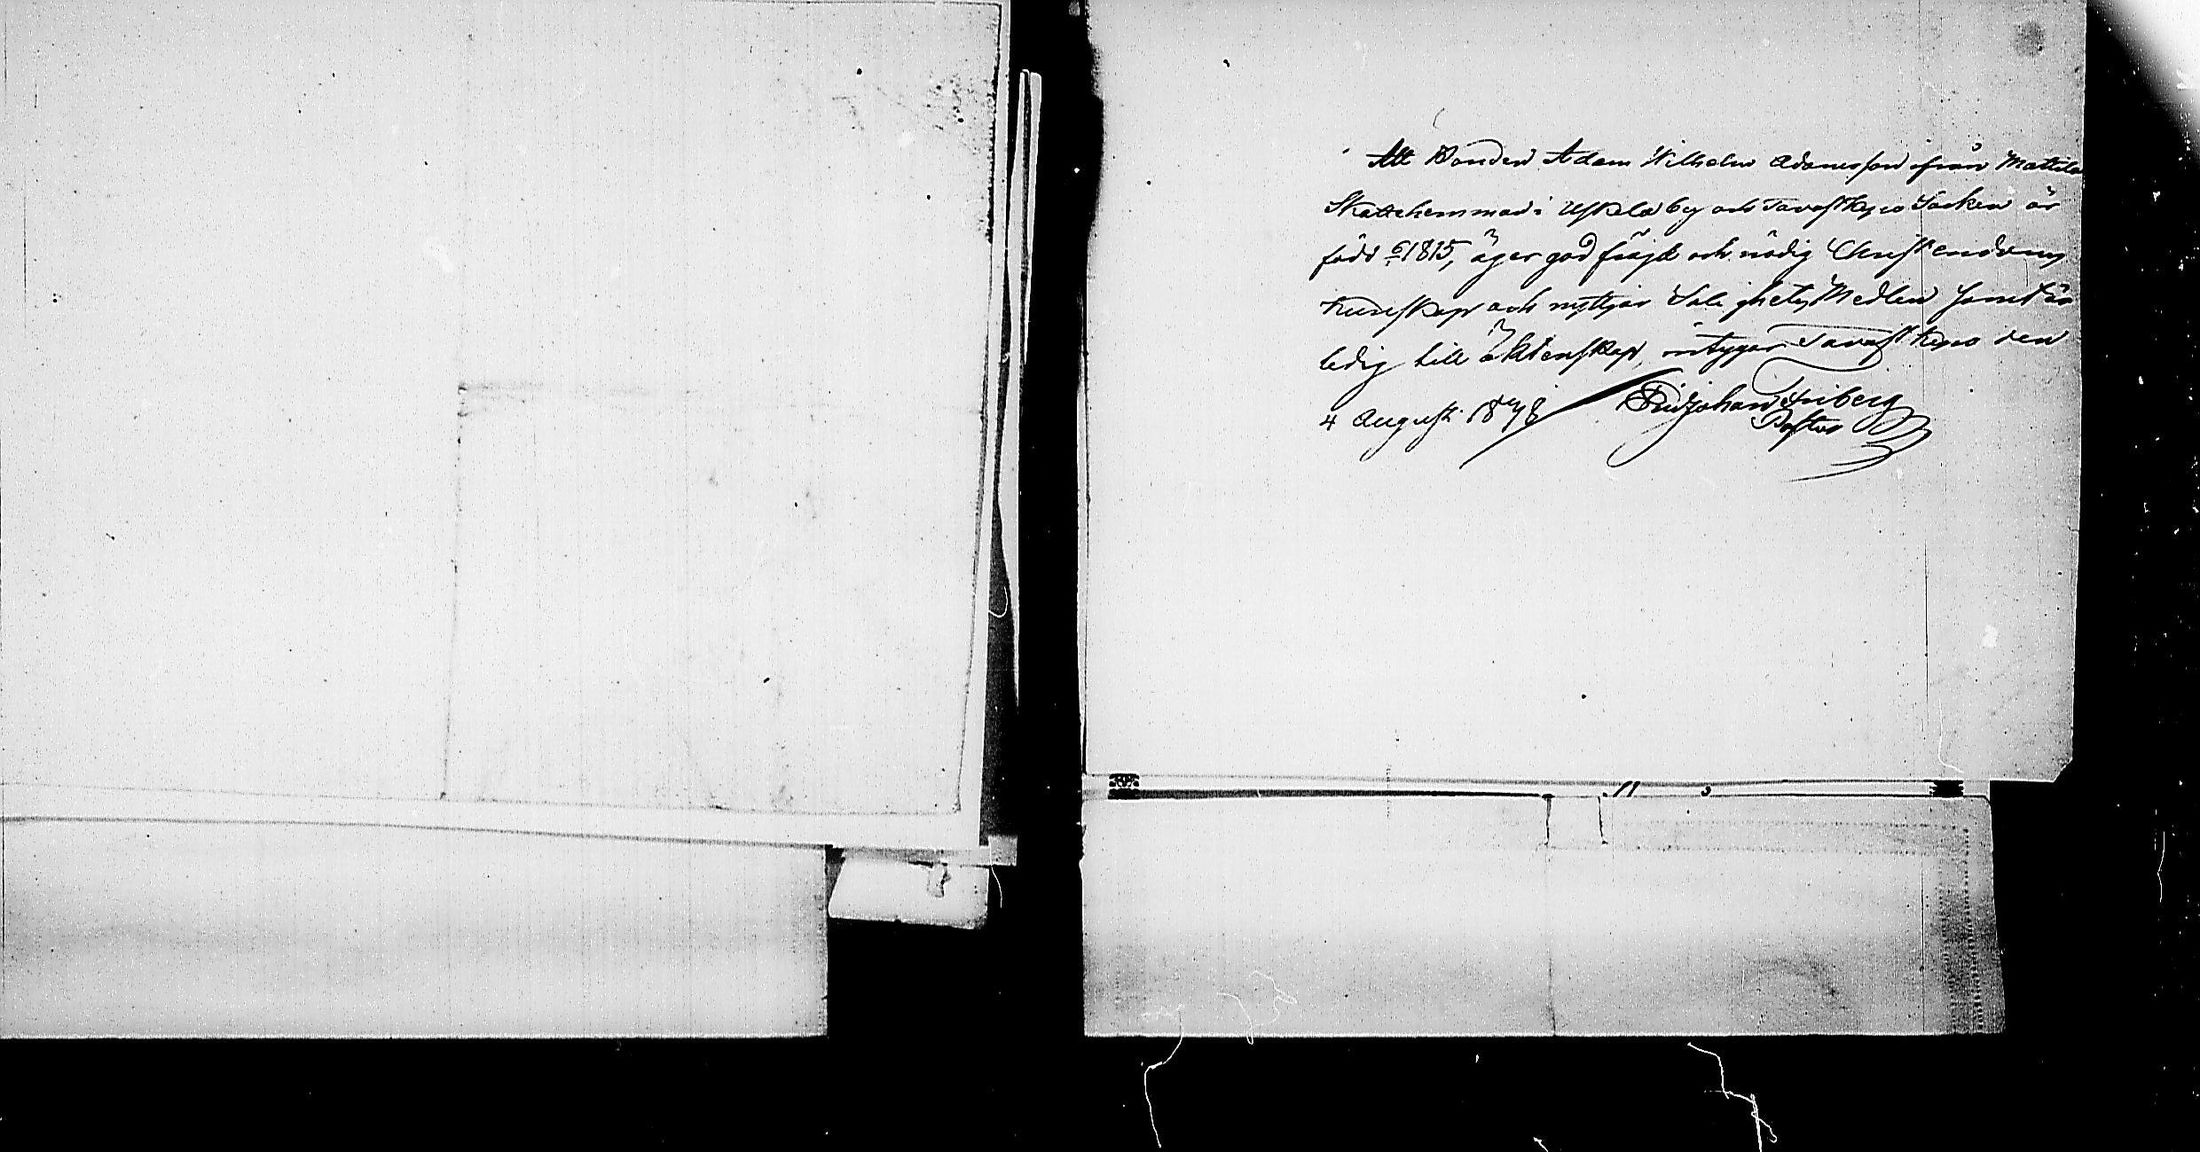 Att Bonden Adam Wilhelm Adamsson ifrån Mattila
Skattehemman i Uskela by och Tavastkyro Socken är
född 1815, äger god fräjd och nödig Christendoms
kunskap och nyttjar Salighets Medlen samt är
ledig till äktenskap, intygar Tavastkyro den
4 Augusti 1878
Friberg
Pastor